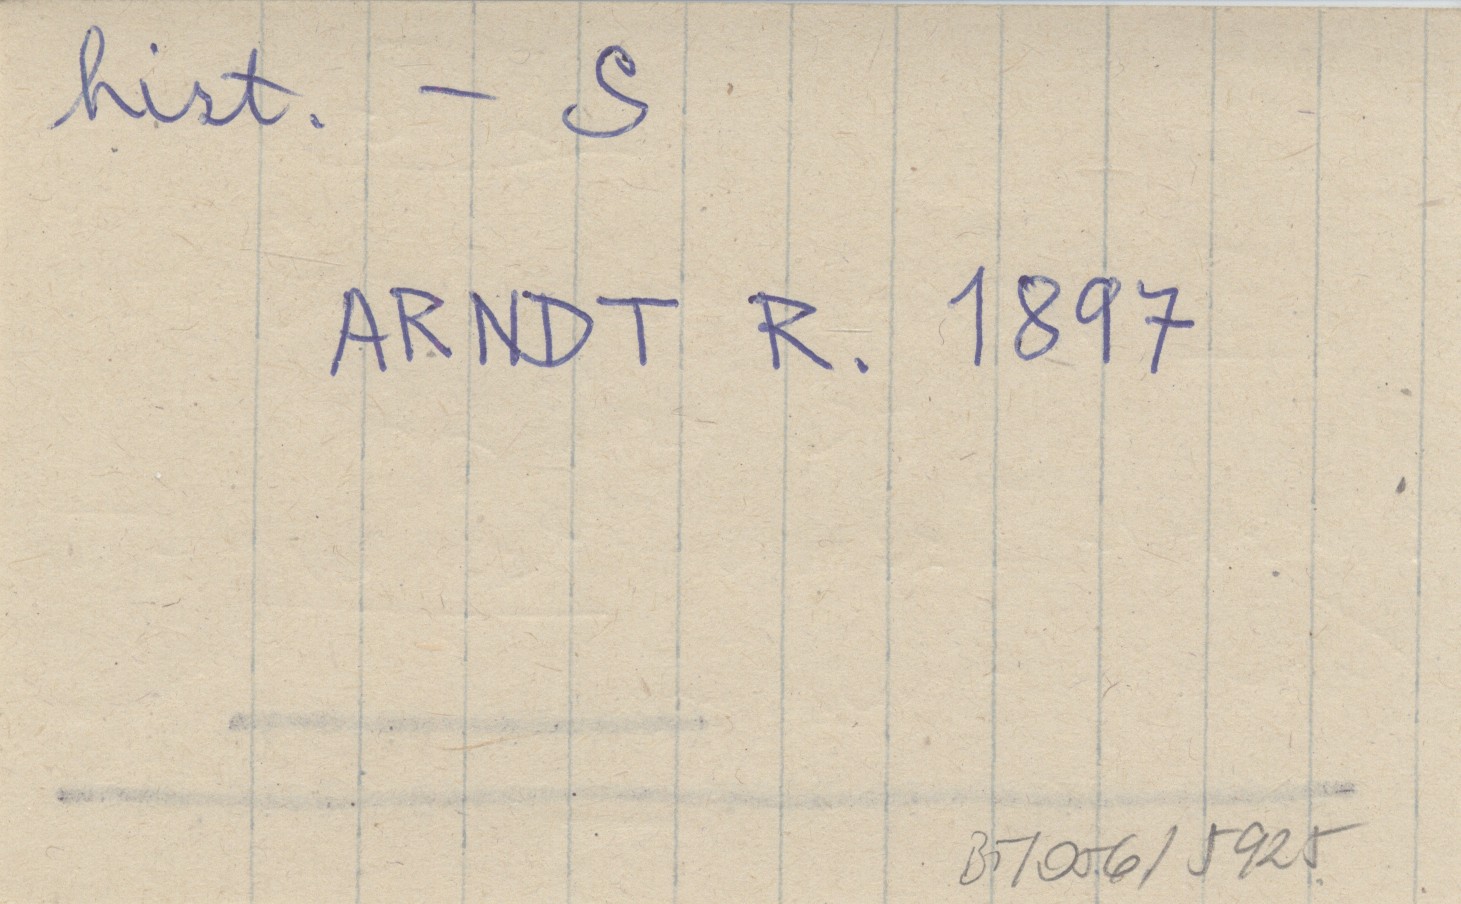 hist. – S
ARNDT R. 1897
B5/056/5925